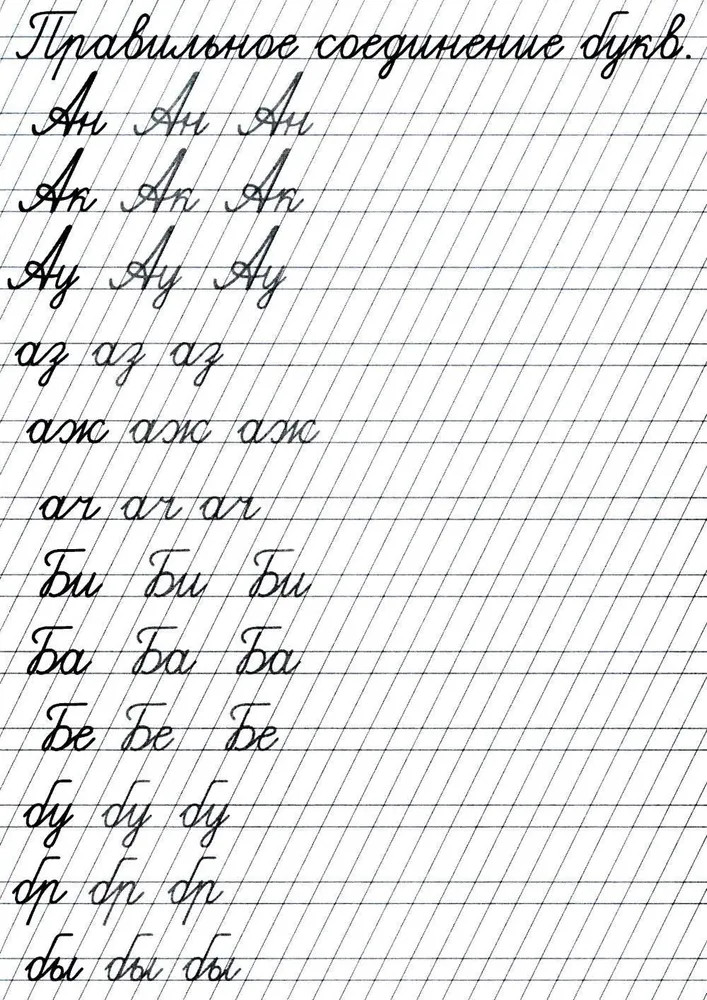 Правильное соединение букв.
Ан Ан Ан
Ак Ак Ак
Ау Ау Ау
аз аз аз
аж аж аж
ач ач ач
Би Би Би
Ба Ба Ба
Бе Бе Бе
бу бу бу
бр бр бр
бы бы бы